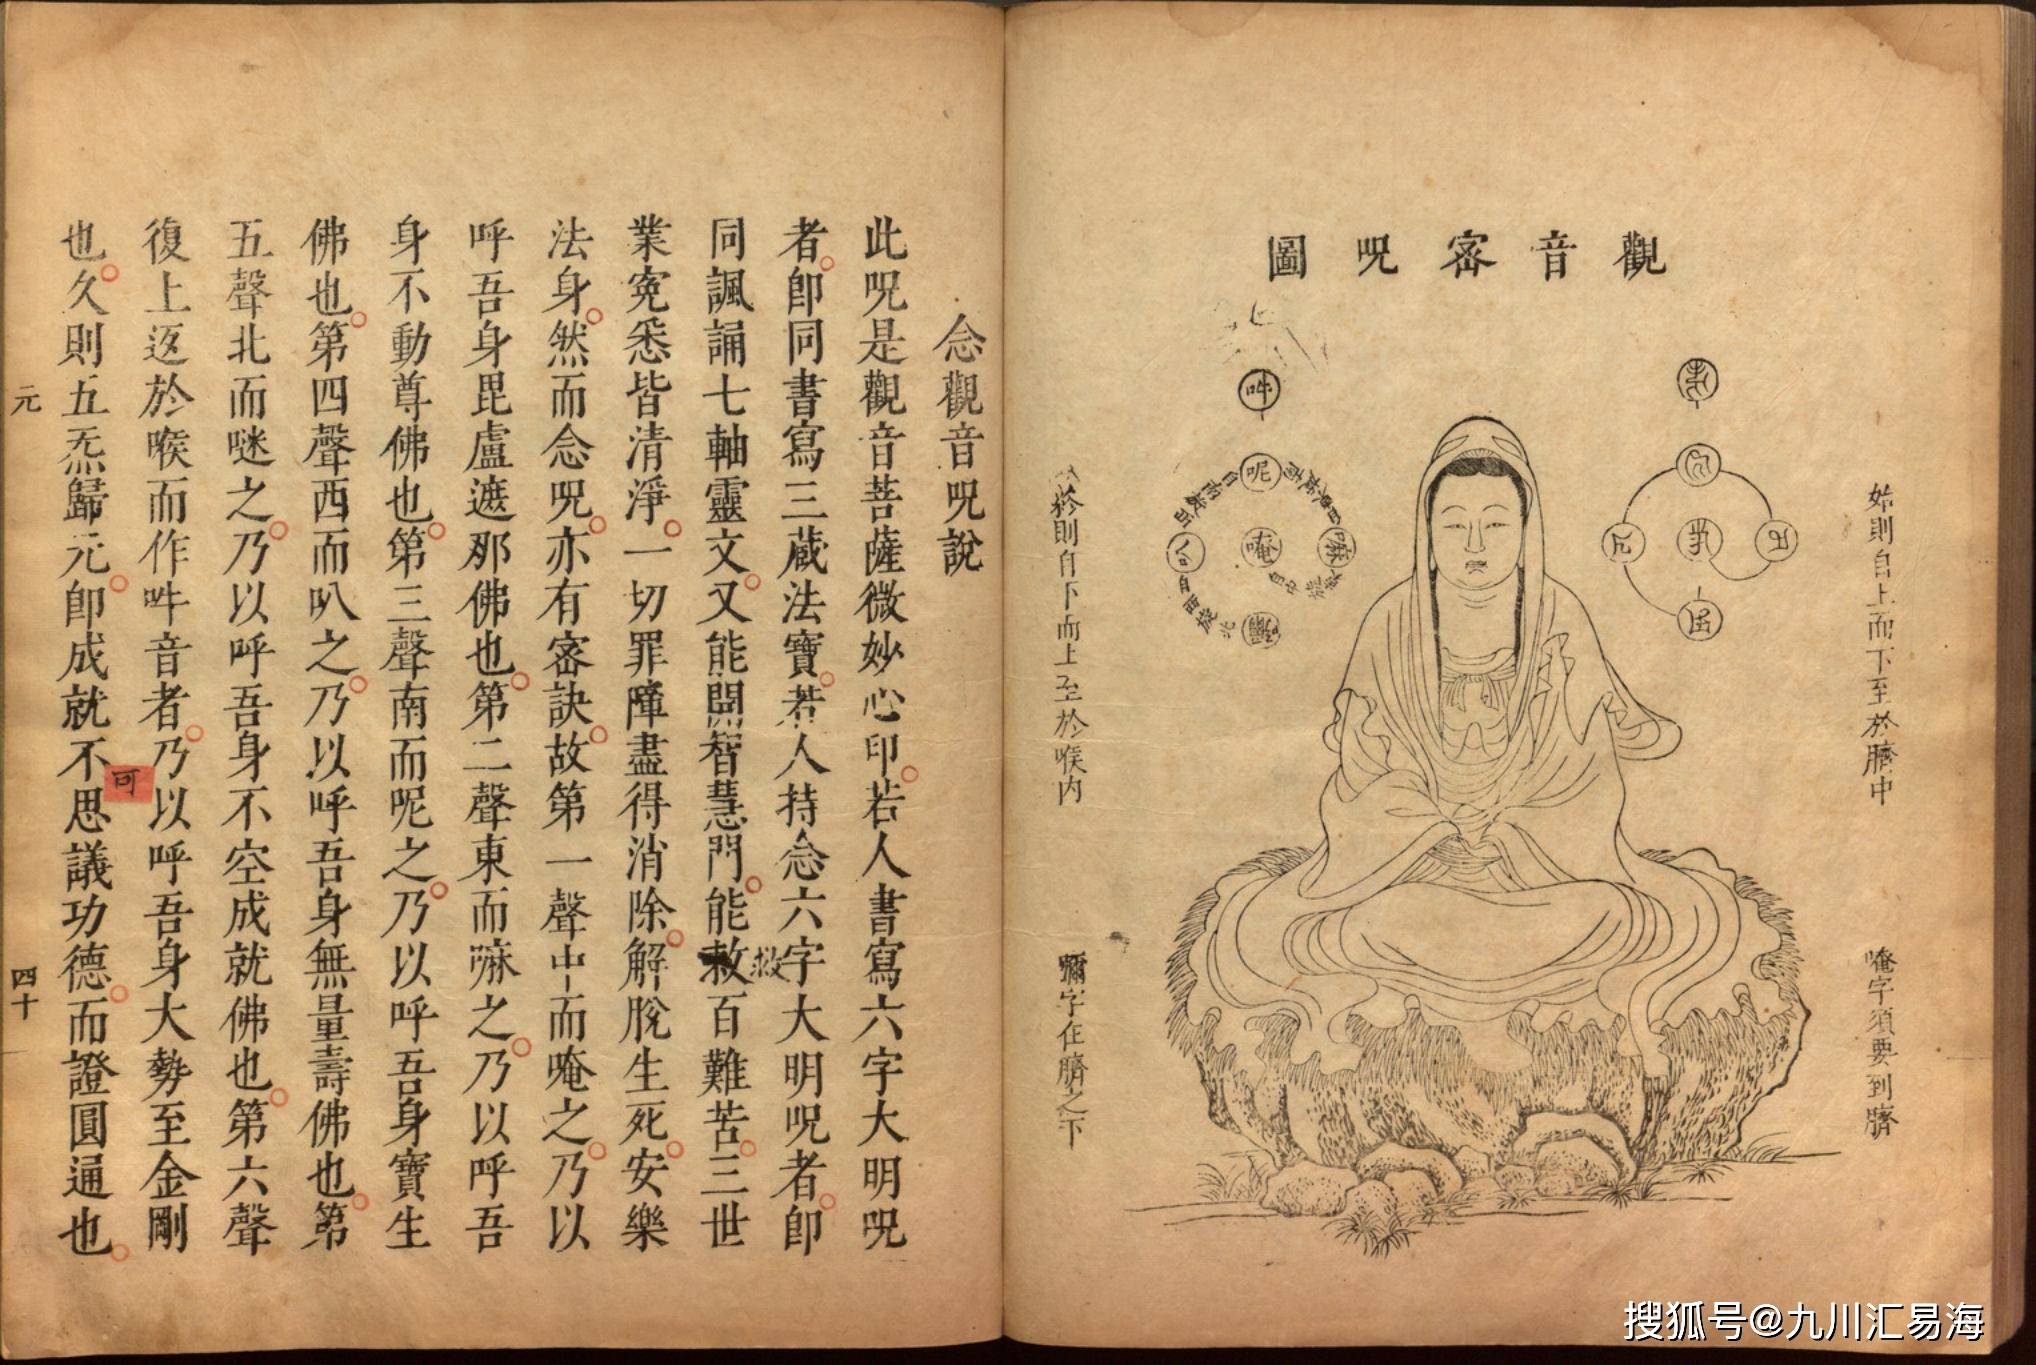 觀音密呪圖
始則自上而下至於臍中
唵字須要到臍
吽
呢
嘛
唵
叭
終則自下而上至於喉內
彌字在臍之下
念觀音呪說
此呪是觀音菩薩微妙心印若人書寫六字大明呪
者即同書寫三藏法寶若人持念六字大明呪者即
同諷誦七軸靈文又能開智慧門能救百難苦三世
救
業寃悉皆清淨一切罪障盡得消除解脫生死安樂
法身然而念呪亦有密訣故第一聲中而唵之乃以
呼吾身毘盧遮那佛也第二聲東而嘛之乃以呼吾
身不動尊佛也第三聲南而呢之乃以呼吾身寶生
佛也第四聲西而叭之乃以呼吾身無量壽佛也第
五聲北而㖷之乃以呼吾身不空成就佛也第六聲
復上返於喉而作吽音者乃以呼吾身大勢至金剛
可
也久則五炁歸元即成就不思議功德而證圓通也
元
四十
搜狐号@九川汇易海